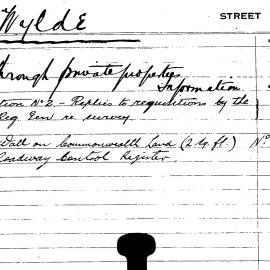 Wylde STREET
through private properties
Information
tion No 2. - Replies to requisitions by the
Reg. Gen re survey.
Wall on Commonwealth Land (2 sq. ft.) No
Roadway Control Register.